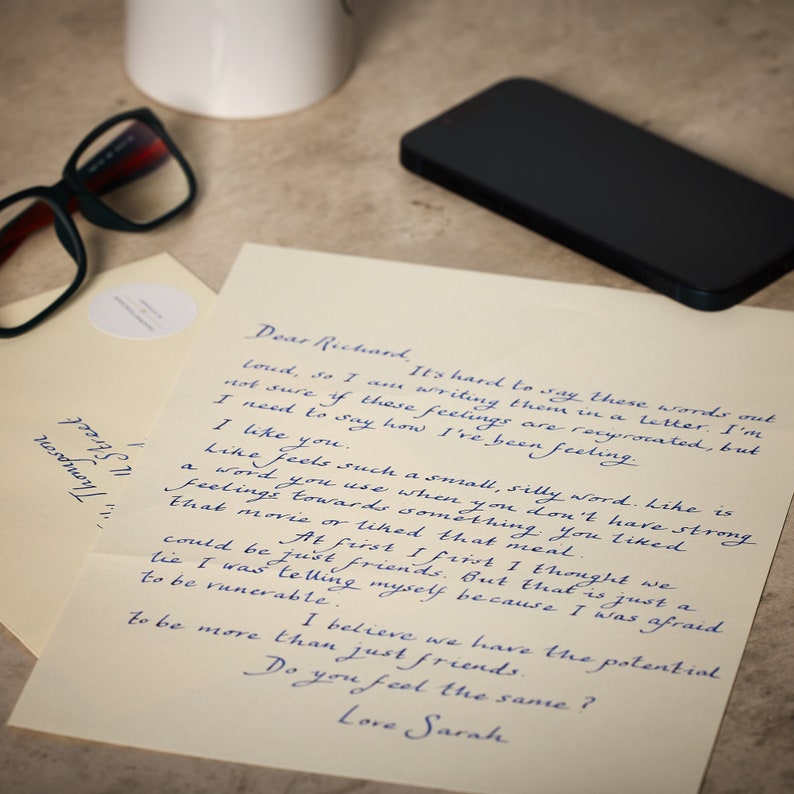 Dear Richard,
It's hard to say these words out
loud, so I am writing them in a letter. I'm
not sure if these feelings are reciprocated, but
I need to say how I've been feeling.
I like you.
Like feels such a small, silly word. Like is
a word you use when you don't have strong
feelings towards something. You liked
that movie or liked that meal.
At first I first I thought we
could be just friends. But that is just a
lie I was telling myself because I was afraid
to be vunerable.
I believe we have the potential
to be more than just friends.
Do you feel the same?
Love Sarah
Thompson
Street